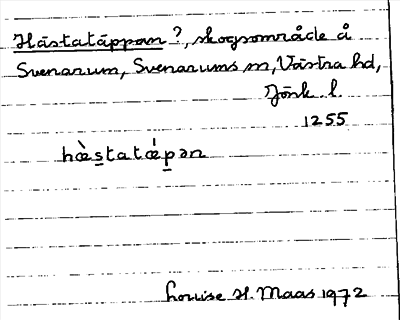 Hästatäppan?, skogsområde å
Svenarum, Svenarums sn, Västra hd,
Jönk l.
1255
hæ̀statǽpən
Louise H. Maas 1972